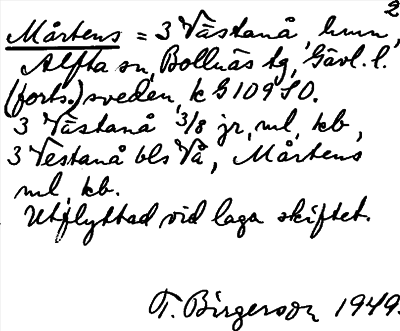 2
Mårtens = 3 Västanå, hmn,
Alfta sn, Bollnäs tg, Gävl. l.
(forts.) sveden, k G 109 S O.
3 Västanå 3/8 jr, ml, kb,
3 Vestanå bls Vå, Mårtens
ml, kb.
Utflyttad vid laga skiftet.
T. Birgerson 1949.